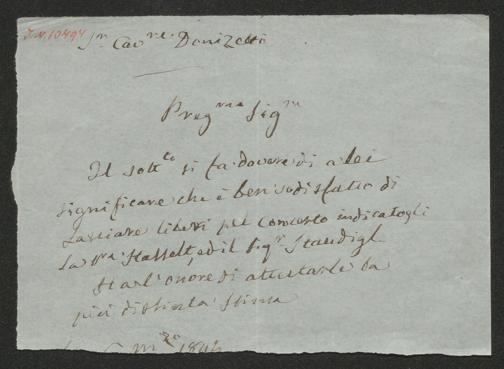 I.N. 10494
Sr. Cavre. Donizetti
Pregmo Sigre
Il sottto si fa dovere di a lei
significare che è ben sodisfatto di
lasciare liberi pel concerto indicatogli
la Sra Hasselt, ed il Sigr. Staudigl
Ha l'onore di attestarle la
più distinta stima
1844